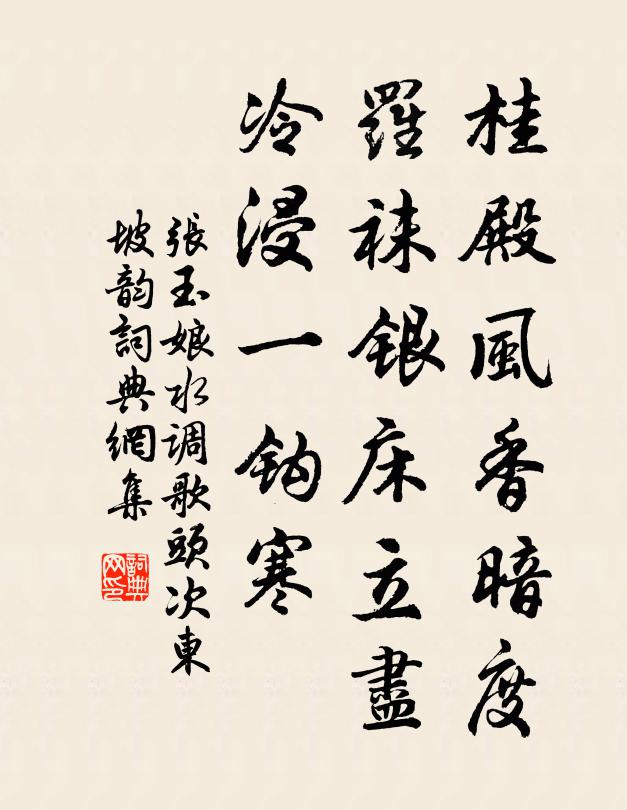 桂殿風香暗度
羅袜銀床立盡
冷浸一鈎寒
張玉娘水调歌頭次東
坡韵詞典網集
詞典網印